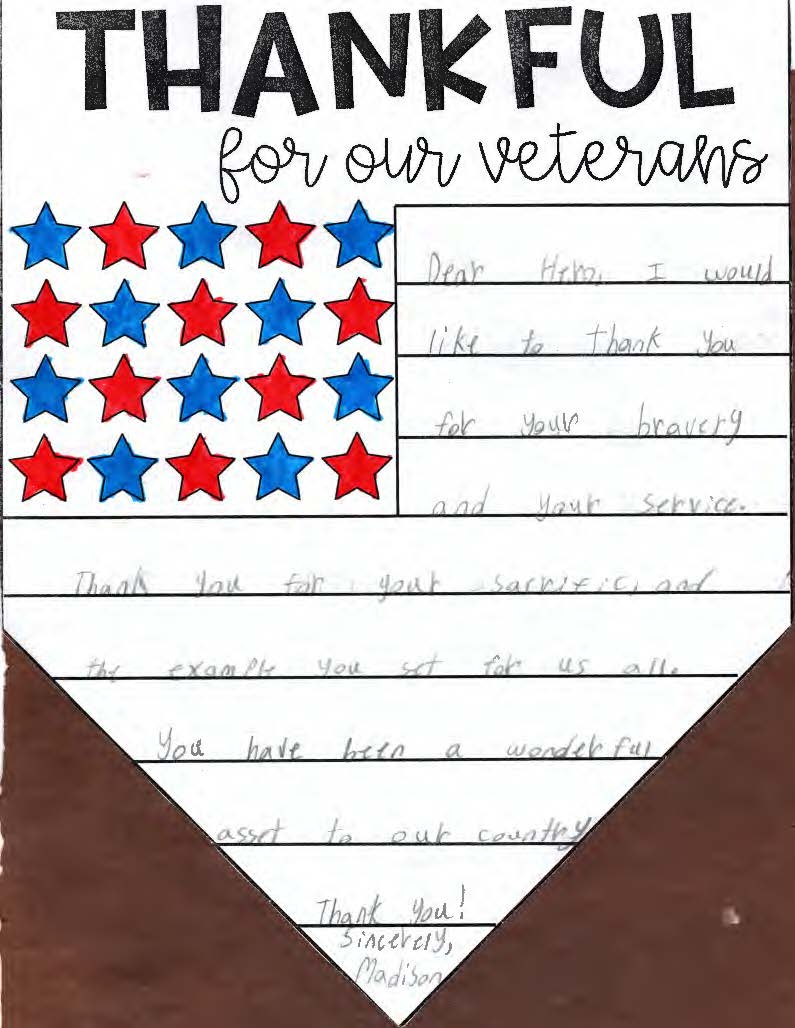 THANKFUL
for our veterans
Dear Hero, I would
like to thank you
for your bravery
and your service.
Thank you for your sacrific, and
the example you set for us all.
You have been a wonderful
asset to our country
Thank you!
Sincerely,
Madison